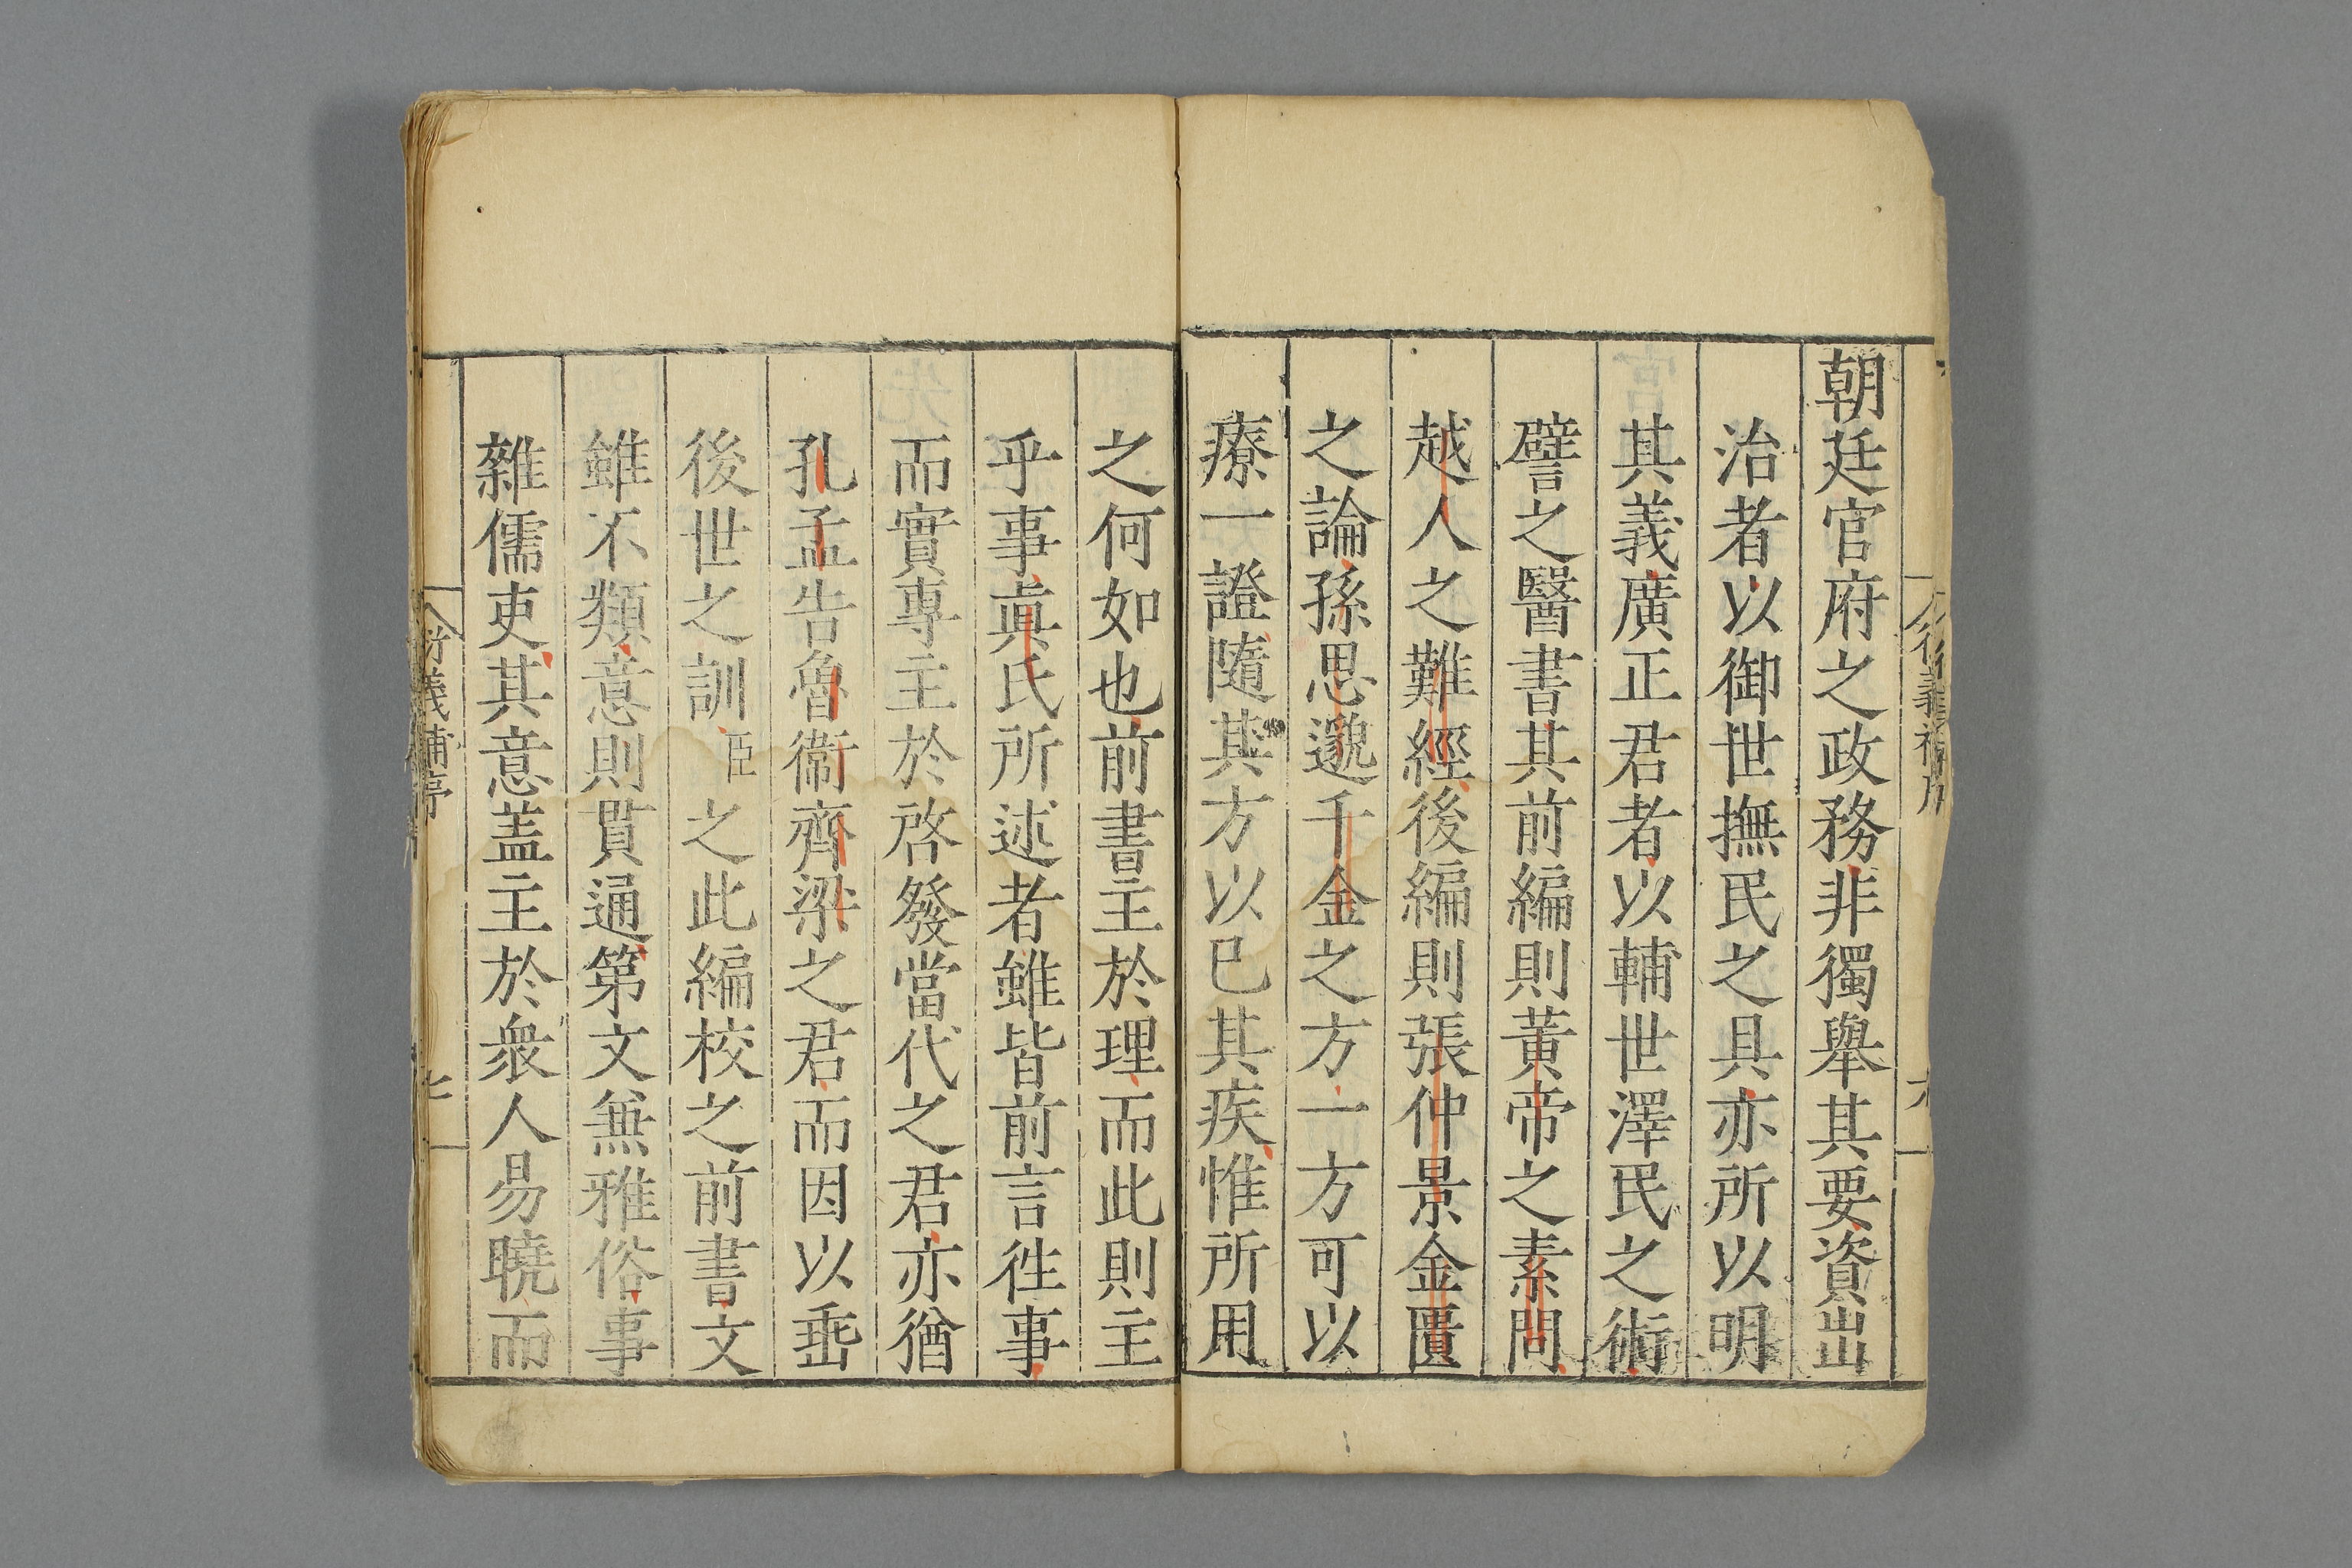 朝廷官府之政務非獨舉其要資出
治者以御世撫民之具亦所以明
其義廣正君者以輔世澤民之術
譬之醫書其前編則黃帝之素問
越人之難經後編則張仲景金匱
之論孫思邈千金之方一方可以
療一證隨其方以已其疾惟所用
之何如也前書主於理而此則主
乎事眞氏所述者雖皆前言徃事
而實專主於啓發當代之君亦猶
孔孟告魯衛齊梁之君而因以埀
後世之訓臣之此編校之前書文
雖不類意則貫通第文無雅俗事
雜儒吏其意盖主於衆人易曉而